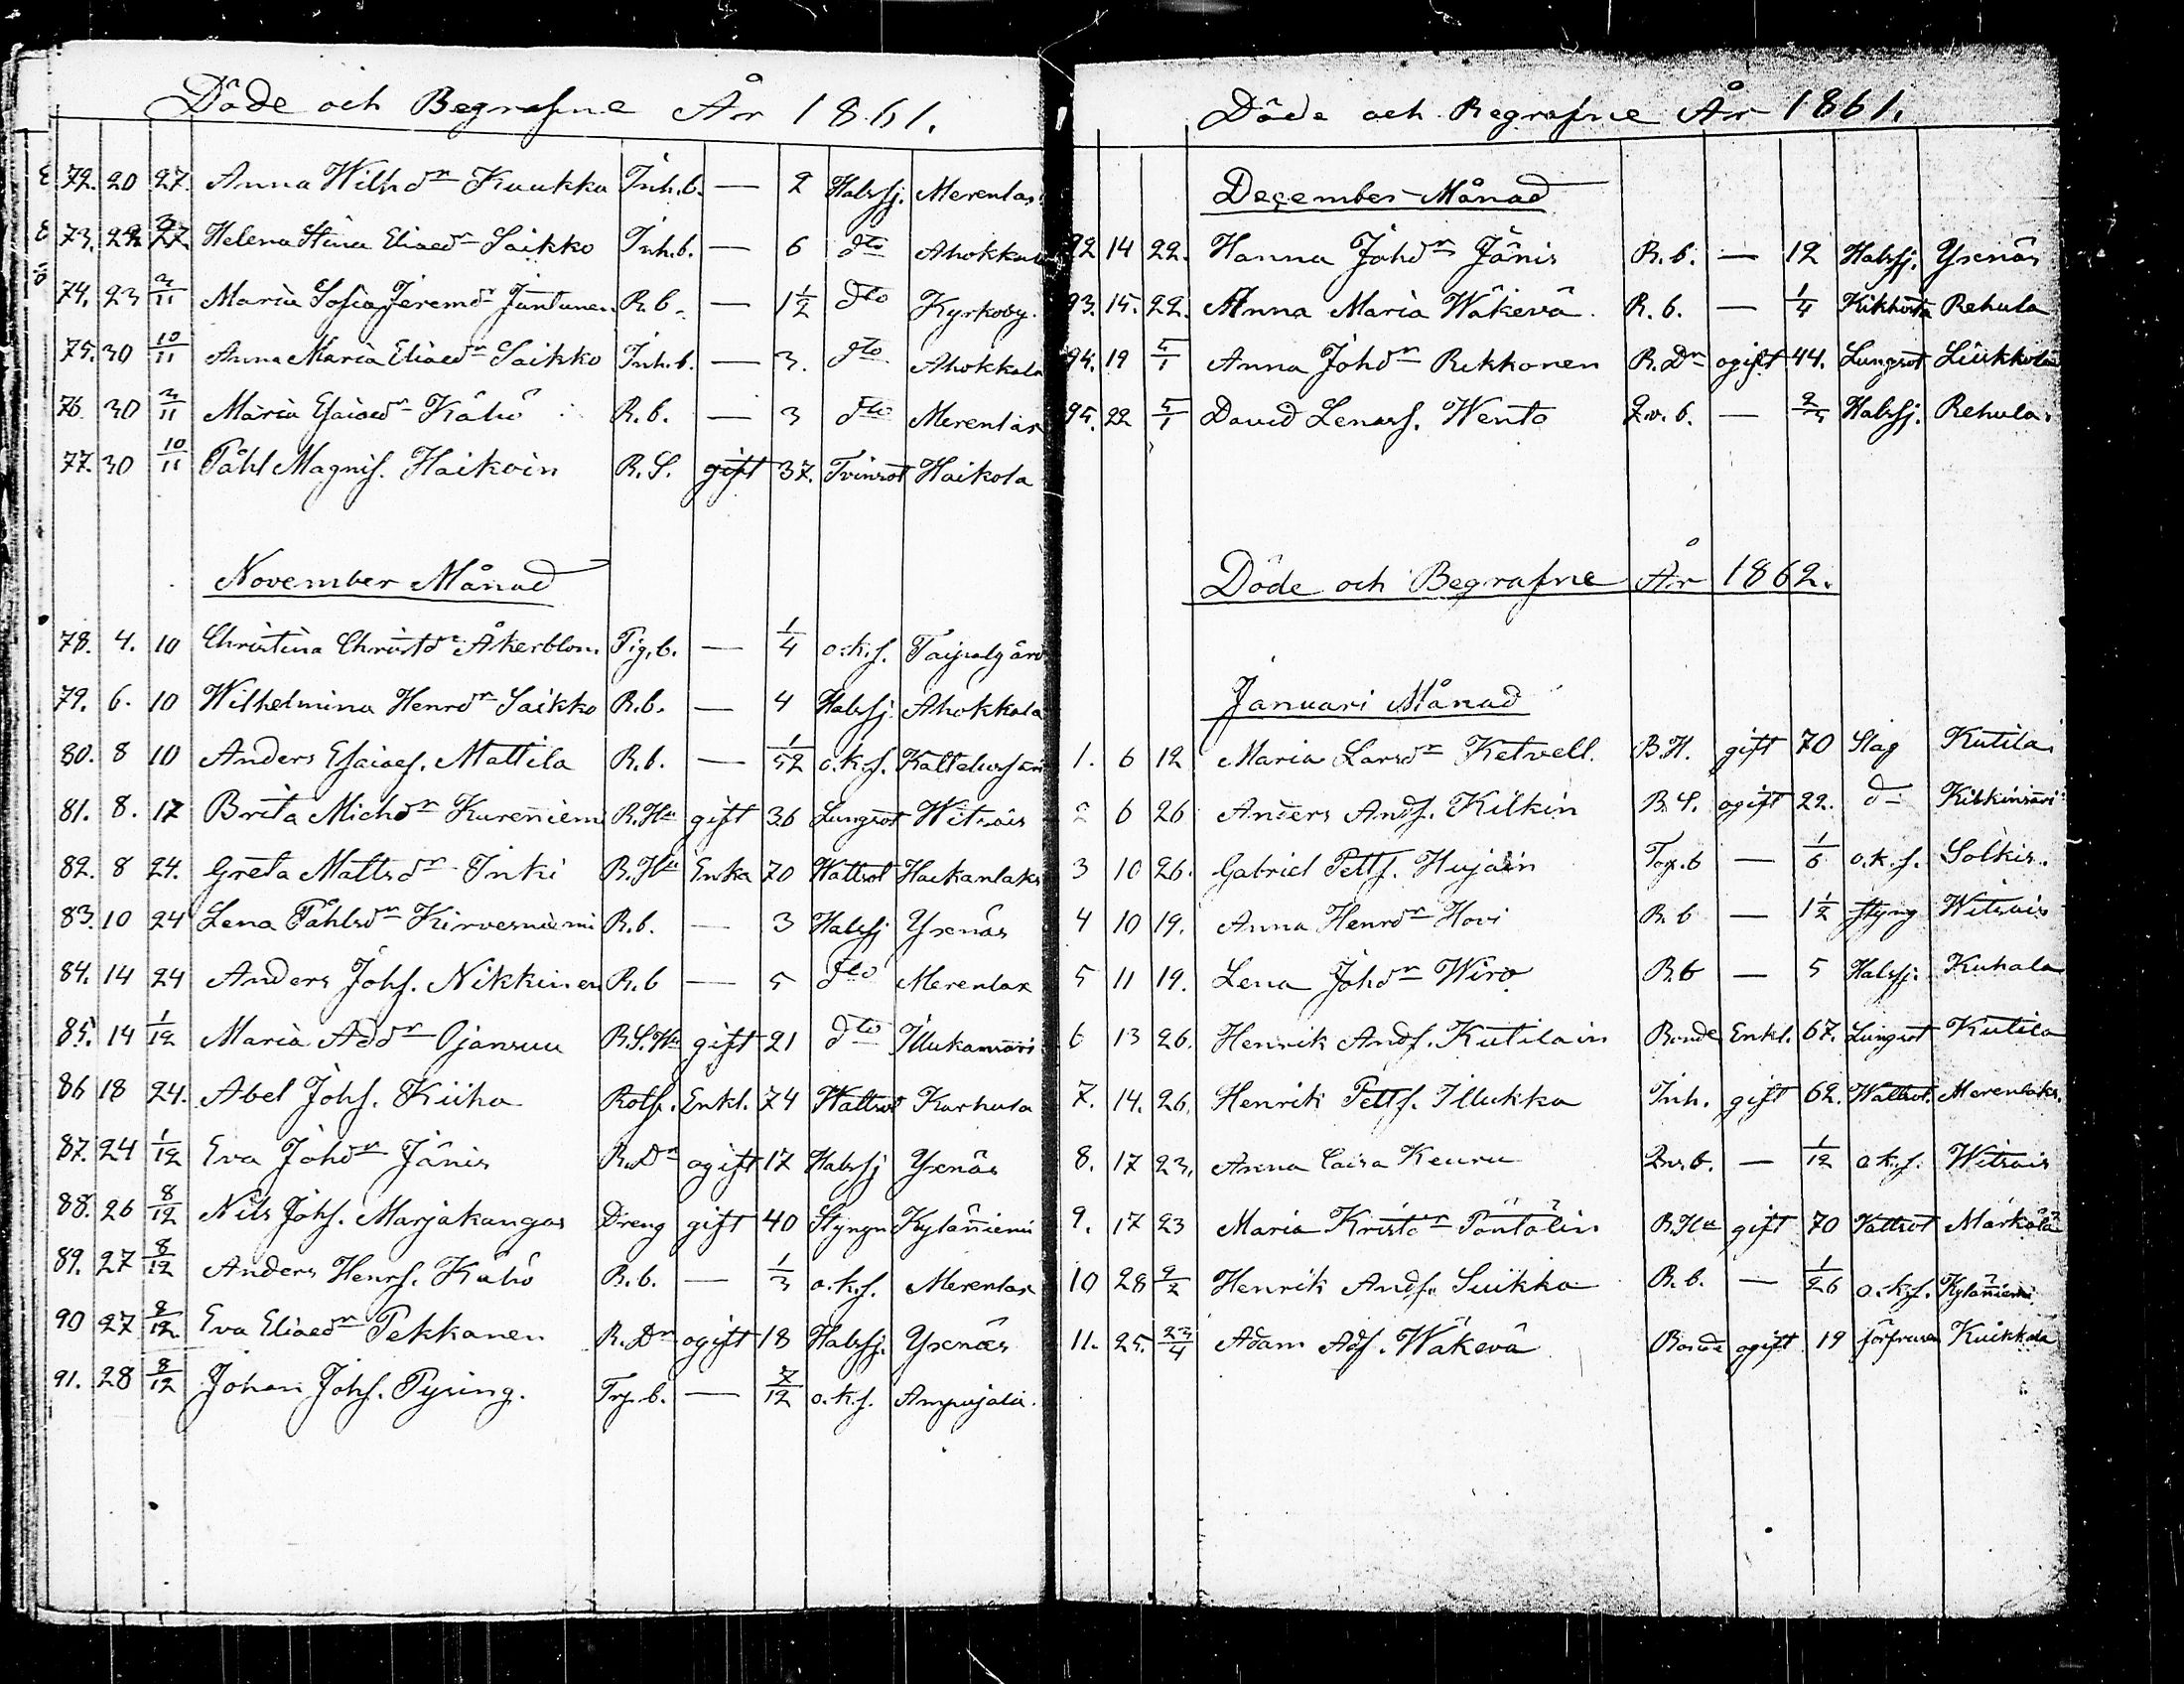 Döde och Begrafne År 1861.
72. 20 27. Anna Wilhdr Kuukka Inh.b. — 2 Halssj. Merenlax
73. 22 27 Helena Stina Eliaedr Saikko Inh.b. — 6 dto Ahokkala
74. 23 3/11 Maria Sofia Jeremdr Juntunen R.b. — 1 1/2 dto Kyrkoby.
75. 30 10/11 Anna Maria Eliaedr Saikko Inh.b. — 3. dto Ahokkala
76. 30 3/11 Maria Esaiaedr Kähö R.b. — 3 dto Merenlax
77. 30 10/11 Påhl Magnis. Haikoin R.S. gift 37. Tvinsot Haikola
November Månad
78. 4. 10 Christina Christdr Åkerblom. Pig.b. — 1/4 o.k.s. Taipalgård
79. 6. 10 Wilhelmina Henrdr Saikko R.b. — 4 Halssj. Ahokkala
80. 8 10 Anders Esaiaes. Mattila R.b. — 1/52 o.k.s.
81. 8. 17 Brita Michdr Kureniemi R.Hu gift 36 Lungsot Witsais
82. 8 24. Greta Mattsdr Inki R.Hu Enka 70 Wattsot Haukanlaks
83. 10 24 Lena Påhlsdr Kirvesniemi R.b. — 3 Halssj Yxenäs
84. 14 24 Anders Johs. Nikkinen R.b — 5 dto Merenlax
85. 14 1/12 Maria Addr Ojansuu R.S.Hu gift 21 dto Illukansaari
86 18 24. Abel Johs. Kiiha Rotf. Enkl. 74 Wattsot Karhula
87. 24 1/12 Eva Johdr Jänis R.Dr ogift 17 Halssj Yxenäs
88. 26 8/12 Nils Johs. Marjakangas Dreng gift 40 Styngn Kyläniemi
89. 27 8/12 Anders Henrs. Kähö R.b. — 1/3 o.k.s. Merenlax
90 27 8/12. Eva Eliaedr Pekkanen R.Dr ogift 18 Halssj. Yxenäs
91. 28 8/12 Johan Johs. Pysing. Trp.b. — 7/12 o.k.s. Ampujala.
Döde och Begrafne År 1861.
December Månad
92 14 22. Hanna Johdr Jänis R.b. — 12 Halssj. Yxenäs
93. 15. 22. Anna Maria Wäkevä. R.b. — 1/4 Kikhosta Rehula
94. 19 5/1 Anna Johdr Rekkonen R.Dr ogift 44. Lungsot Liukkola
95. 22 5/1 David Lenars. Wento Qv.b. — 2/3 Halssj. Rehula.
Döde och Begrafne År 1862.
Januari Månad
1. 6 12 Maria Larsdr Ketvell. B.H. gift 70 Slag Kutila
2 6 26 Anders Ands. Kilkin B.S. ogift 22. do Kilkinsari
3 10 26. Gabriel Petts. Hujain Torp.b — 1/6 o.k.s. Solkis.
4 10 19. Anna Henrdr Hovi R.b — 1 1/2 styng Witsais
5 11 19. Lena Johdr Wiro R.b — 5 Halssj. Kuhala
6 13 26. Henrik Ands. Kutilain Bonde Enkl. 67. Lungsot Kutila
7. 14. 26. Henrik Petts. Illukka Inh. gift 62. Wattsot. Merenlaks.
8. 17 23. Anna Caisa Keuru Qv.b. — 1/12 o.k.s. Witsais
9. 17 23 Maria Kristdr Pöntölin B.Hu gift 70 Vattsot Märkälä
10 28 2/2 Henrik Ands. Suikka R.b. — 1/26 o.k.s. Kyläniemi.
11. 25. 23/4 Adam Ads. Wäkevä Bonde ogift 19 förfrusen Kuikkala